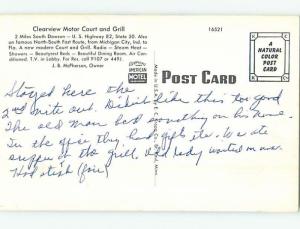 Clearview Motor Court and Grill
2 Miles South Dawson - U. S. Highway 82, State 50. Also
on famous North-South Fast Route, from Michigan City, Ind. to
Fla. A new modern Court and Grill. Radio — Steam Heat —
Showers — Beautyrest Beds — Individual Garage. Air
Conditioned. T.V. in Lobby. For Res. call 9107 or 4491.
J. B. McPherson, Owner
16521
AMERICAN
MOTEL
POST CARD
A
NATURAL
COLOR
POST
CARD
Stayed here the
2nd nite out. Didn't like this too good
The old man had something on his
In the office they had gifts etc. We ate
supper at the grill. Old lady waited on us.
Had